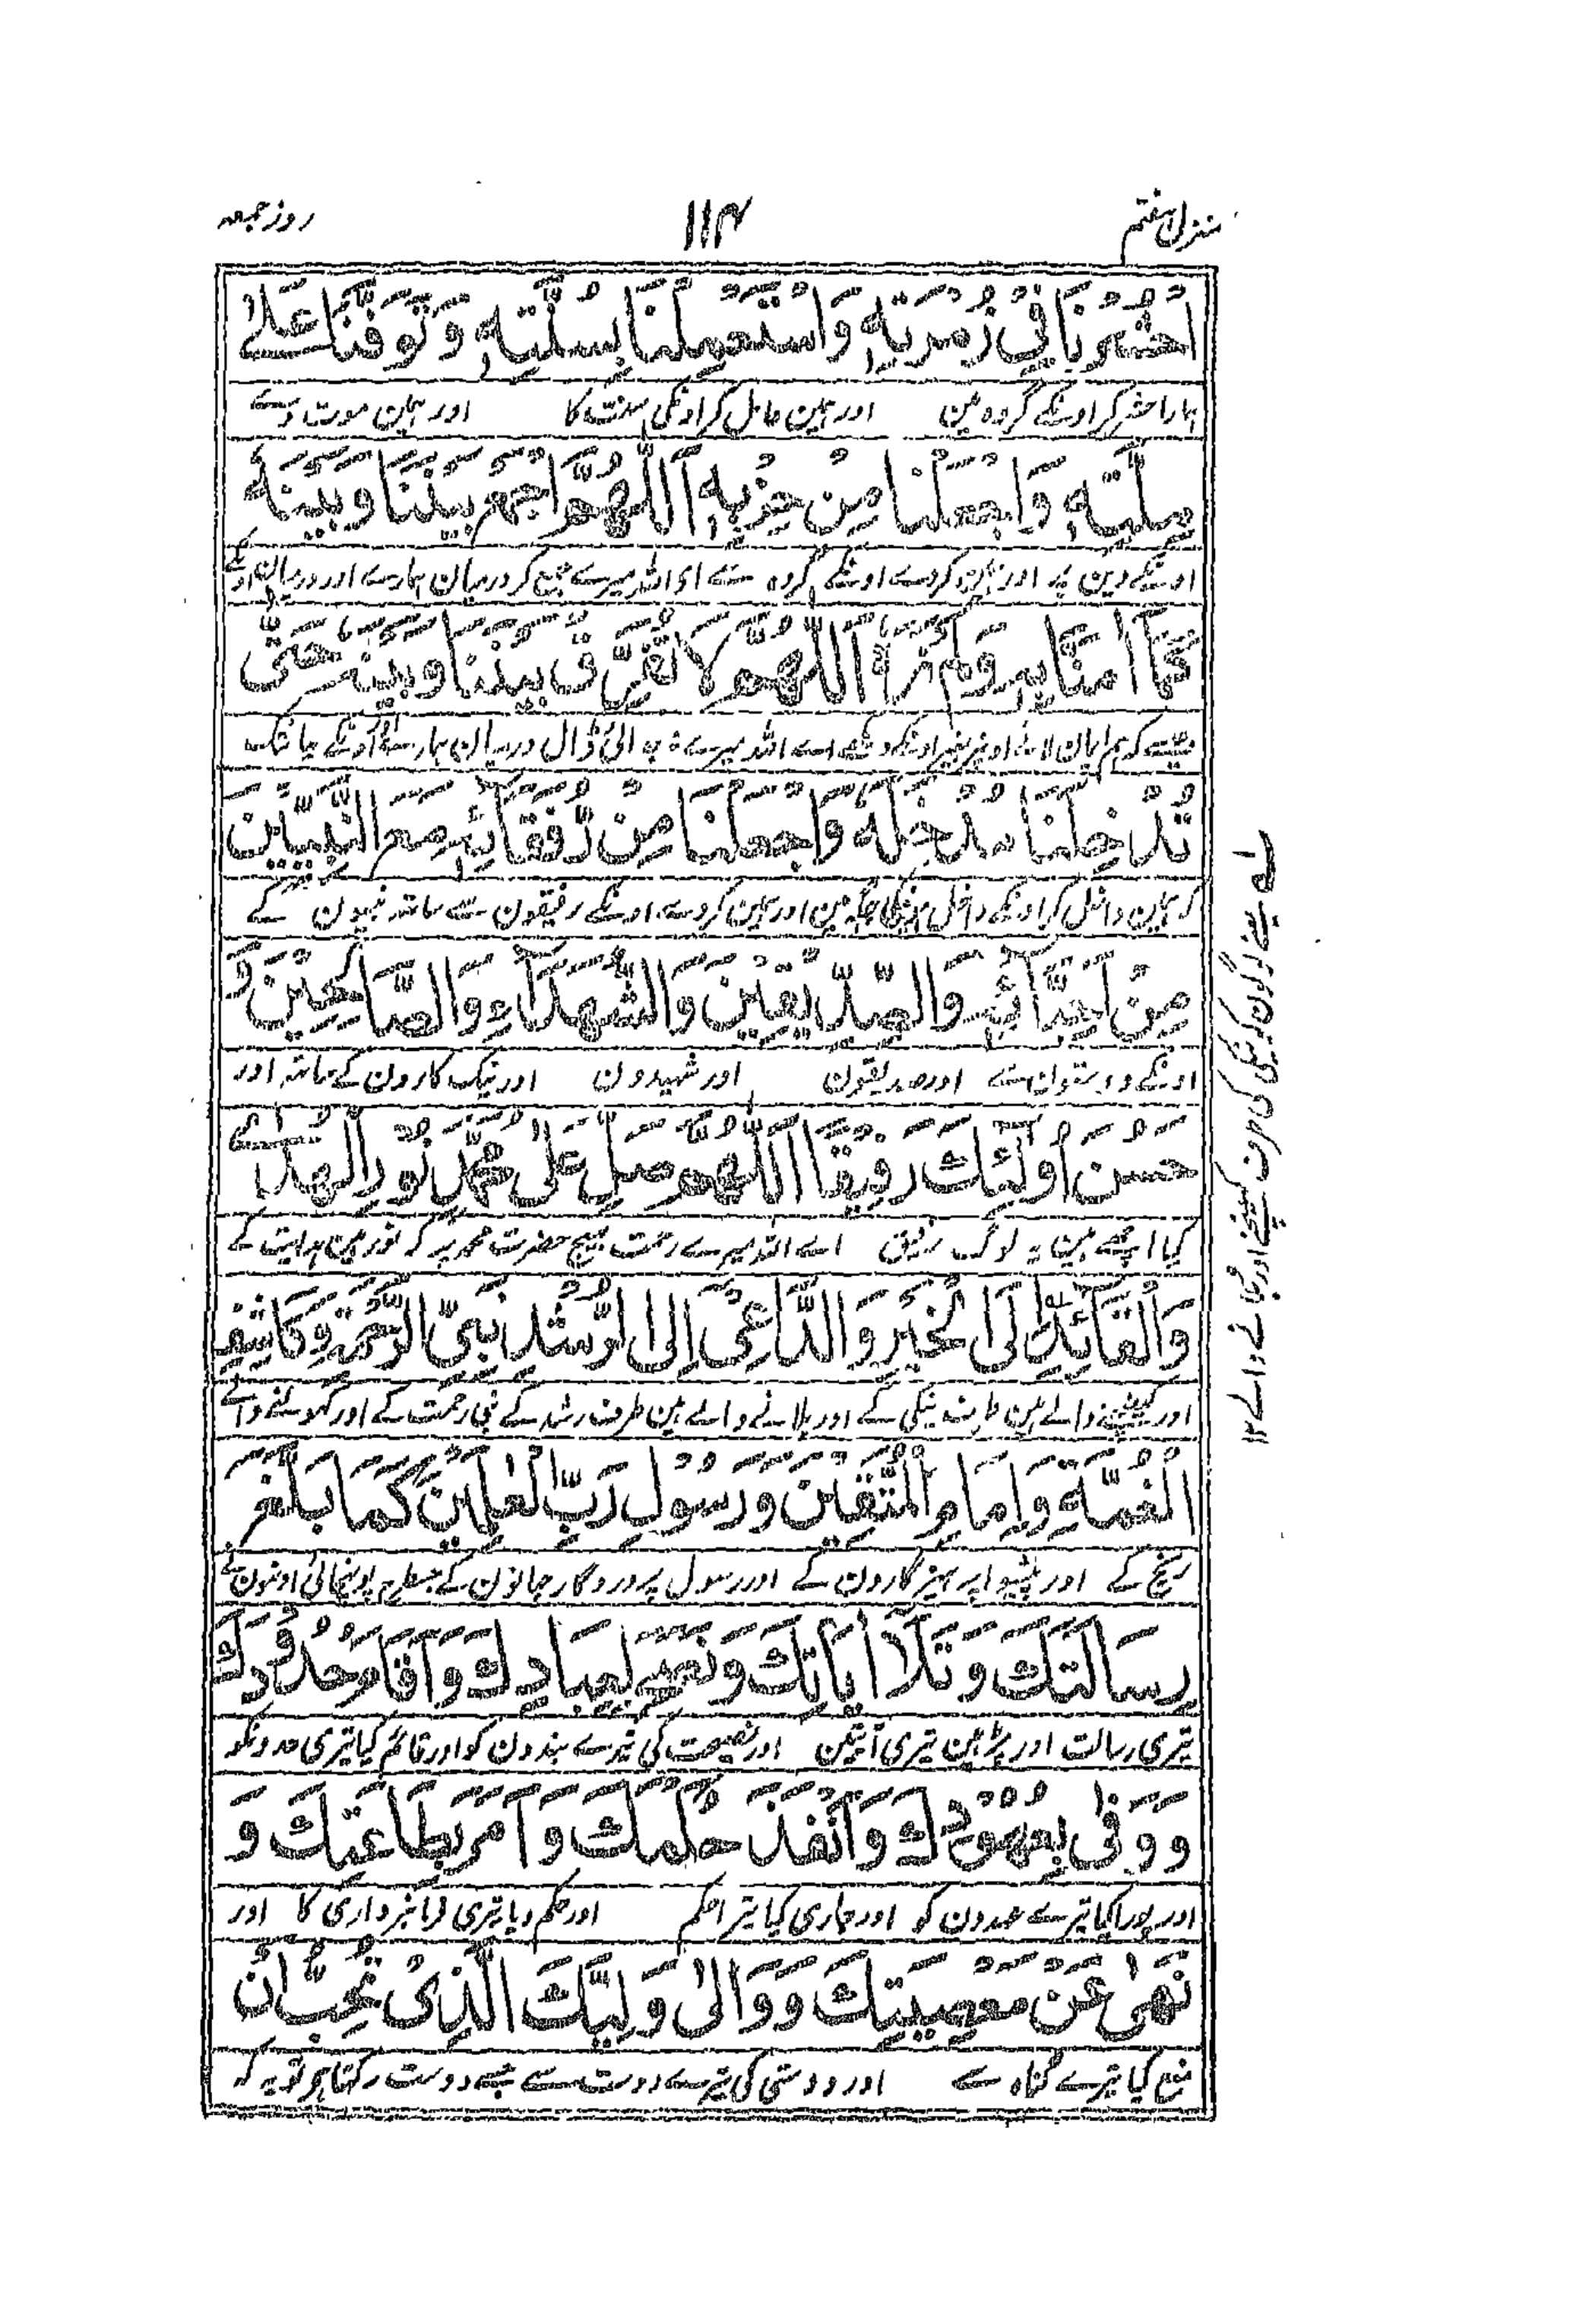 منزل ہفتم
۱۱۴
روز جمعہ
احْشُرْنَا فِیْ زُمْرَتِهٖ وَاسْتَعْمِلْنَا بِسُنَّتِهٖ وَتَوَفَّنَا عَلٰی
ہمارا حشر کر اونکے گروہ مین اور ہمین عامل کر اونکی سنت کا اور ہمین موت دے
مِلَّتِهٖ وَاجْعَلْنَا مِنْ حِزْبِهٖ اَللّٰهُمَّ اجْمَعْ بَيْنَنَا وَبَيْنَهٗ
اونکے دین پر اور کردے اونکے گروہ سے اے اللہ میرے جمع کر درمیان ہمارے اور درمیان اونکے
كَمَآ اٰمَنَّا بِهٖ وَلَمْ نَرَهٗ اَللّٰهُمَّ لَا تُفَرِّقْ بَيْنَنَا وَبَيْنَهٗ حَتّٰى
جیسے کہ ہم ایمان لائے اونپر بغیر اونکے دیکھے اے اللہ میرے نہ ڈال درمیان ہمارے اور اونکے یہانتک
تُدْخِلَنَا مُدْخَلَهٗ وَاجْعَلْنَا مِنْ رُّفَقَآئِهٖ مَعَ النَّبِيِّيْنَ
کہ ہمین داخل کر اونکے داخل ہونیکی جگہ مین اور ہمین کردے اونکے رفیقون سے ساتھ نبیون کے
مِنْ اَحِبَّآئِهٖ وَالصِّدِّيْقِيْنَ وَالشُّهَدَآءِ وَالصَّالِحِيْنَ وَ
اونکے دوستوان سے اور صدیقون اور شہیدون اور نیک کارون کے ساتھ اور
حَسُنَ اُولٰٓئِكَ رَفِيْقًا اَللّٰهُمَّ صَلِّ عَلٰى مُحَمَّدٍ نُّوْرِ الْهُدٰى
کیا اچھے ہین یہ لوگ رفیق اے اللہ میرے رحمت بھیج حضرت محمد پر کہ نور ہین ہدایت کے
وَالْقَآئِدِ اِلَى الْخَيْرِ وَالدَّاعِيْ اِلَى الرُّشْدِ نَبِيِّ الرَّحْمَةِ وَكَاشِفِ
اور کھینچنے والے ہین طرف نیکی کے اور بلانے والے ہین طرف رشد کے نبی رحمت کے اور کھولنے والے
الْغُمَّةِ وَاِمَامِ الْمُتَّقِيْنَ وَرَسُوْلِ رَبِّ الْعٰلَمِيْنَ كَمَا بَلَّغَ
رنج کے اور پیشوا پرہیزگارون کے اور رسول پروردگار جہانون کے جسطرح پونہچائی اونہون نے
رِسَالَتَكَ وَتَلَا اٰيَاتِكَ وَنَصَحَ لِعِبَادِكَ وَاَقَامَ حُدُوْدَكَ
تیری رسالت اور پڑہین تیری آئتین اور نصیحت کی تیرے بندون کو اور قائم کیا تیری حدونکو
وَوَفٰى بِعَهْدِكَ وَاَنْفَذَ حُكْمَكَ وَاَمَرَ بِطَاعَتِكَ وَ
اور پورا کیا تیرے عہدون کو اور جاری کیا تیرا حکم اور حکم دیا تیری فرمانبرداری کا اور
نَهٰى عَنْ مَعْصِيَتِكَ وَوَالٰى وَلِيَّكَ الَّذِيْ تُحِبُّ اَنْ
منع کیا تیرے گناہ سے اور دوستی کی تیرے دوست سے جسے دوست رکھتا ہے تو یہ کہ
لے یعنے لوگون کو نیکی کی طرف کھینچنے اور لیجانے والے ۱۲